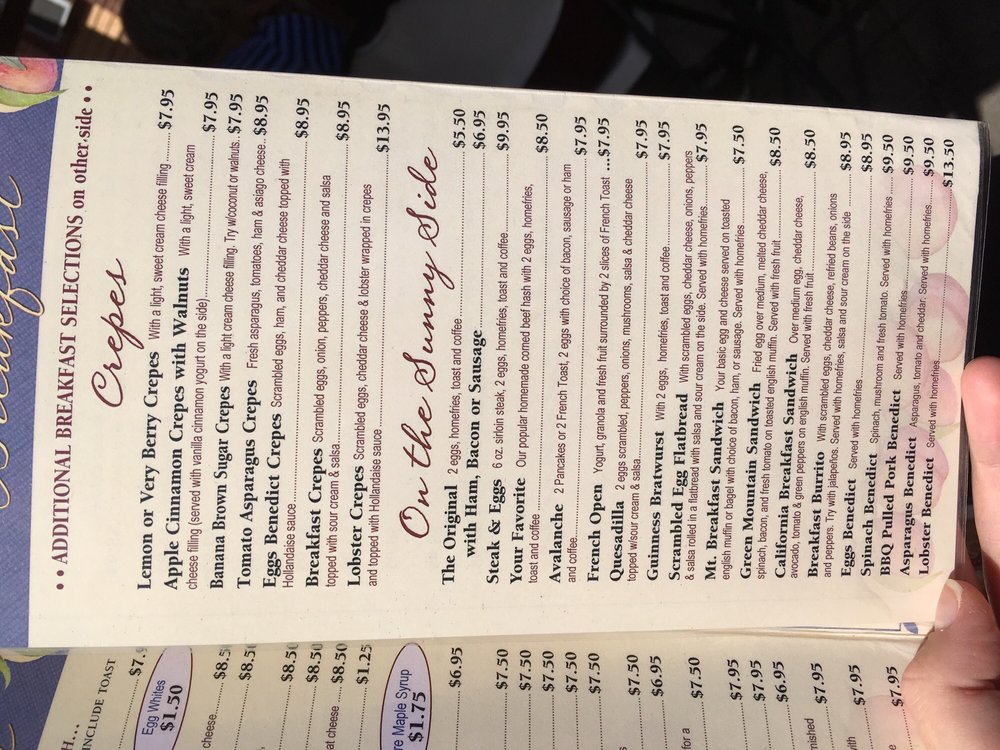 Breakfast
• • ADDITIONAL BREAKFAST SELECTIONS on other side • •
Crepes
Lemon or Very Berry Crepes With a light, sweet cream cheese filling ........ $7.95
Apple Cinnamon Crepes with Walnuts With a light, sweet cream
cheese filling (served with vanilla cinnamon yogurt on the side)........ $7.95
Banana Brown Sugar Crepes With a light cream cheese filling. Try w/coconut or walnuts. $7.95
Tomato Asparagus Crepes Fresh asparagus, tomatoes, ham & asiago cheese.. $8.95
Eggs Benedict Crepes Scrambled eggs, ham, and cheddar cheese topped with
Hollandaise sauce ........ $8.95
Breakfast Crepes Scrambled eggs, onion, peppers, cheddar cheese and salsa
topped with sour cream & salsa........ $8.95
Lobster Crepes Scrambled eggs, cheddar cheese & lobster wrapped in crepes
and topped with Hollandaise sauce ........ $13.95
On the Sunny Side
The Original 2 eggs, homefries, toast and coffee ........ $5.50
with Ham, Bacon or Sausage ........ $6.95
Steak & Eggs 6 oz. sirloin steak, 2 eggs, homefries, toast and coffee........ $9.95
Your Favorite Our popular homemade corned beef hash with 2 eggs, homefries,
toast and coffee ........ $8.50
Avalanche 2 Pancakes or 2 French Toast, 2 eggs with choice of bacon, sausage or ham
and coffee........ $7.95
French Open Yogurt, granola and fresh fruit surrounded by 2 slices of French Toast ...$7.95
Quesadilla 2 eggs scrambled, peppers, onions, mushrooms, salsa & cheddar cheese
topped w/sour cream & salsa........ $7.95
Guinness Bratwurst With 2 eggs, homefries, toast and coffee ........ $7.95
Scrambled Egg Flatbread With scrambled eggs, cheddar cheese, onions, peppers
& salsa rolled in a flatbread with salsa and sour cream on the side. Served with homefries........ $7.95
Mt. Breakfast Sandwich Your basic egg and cheese served on toasted
english muffin or bagel with choice of bacon, ham, or sausage. Served with homefries ........ $7.50
Green Mountain Sandwich Fried egg over medium, melted cheddar cheese,
spinach, bacon, and fresh tomato on toasted english muffin. Served with fresh fruit ........ $8.50
California Breakfast Sandwich Over medium egg, cheddar cheese,
avocado, tomato & green peppers on english muffin. Served with fresh fruit........ $8.50
Breakfast Burrito With scrambled eggs, cheddar cheese, refried beans, onions
and peppers. Try with jalapeños. Served with homefries, salsa and sour cream on the side ........ $8.95
Eggs Benedict Served with homefries ........ $8.95
Spinach Benedict Spinach, mushroom and fresh tomato. Served with homefries ........ $9.50
BBQ Pulled Pork Benedict Served with homefries ........ $9.50
Asparagus Benedict Asparagus, tomato and cheddar. Served with homefries ........ $9.50
Lobster Benedict Served with homefries........ $13.50
INCLUDE TOAST
Egg Whites
$1.50
cheese........ $8.50
$8.50
$8.50
at cheese ........ $8.50
$1.25
re Maple Syrup
$1.75
$6.95
$7.50
$7.50
$7.50
$7.50
$6.95
for a
$7.50
$7.95
$7.50
$6.95
$7.95
$7.95
$7.95